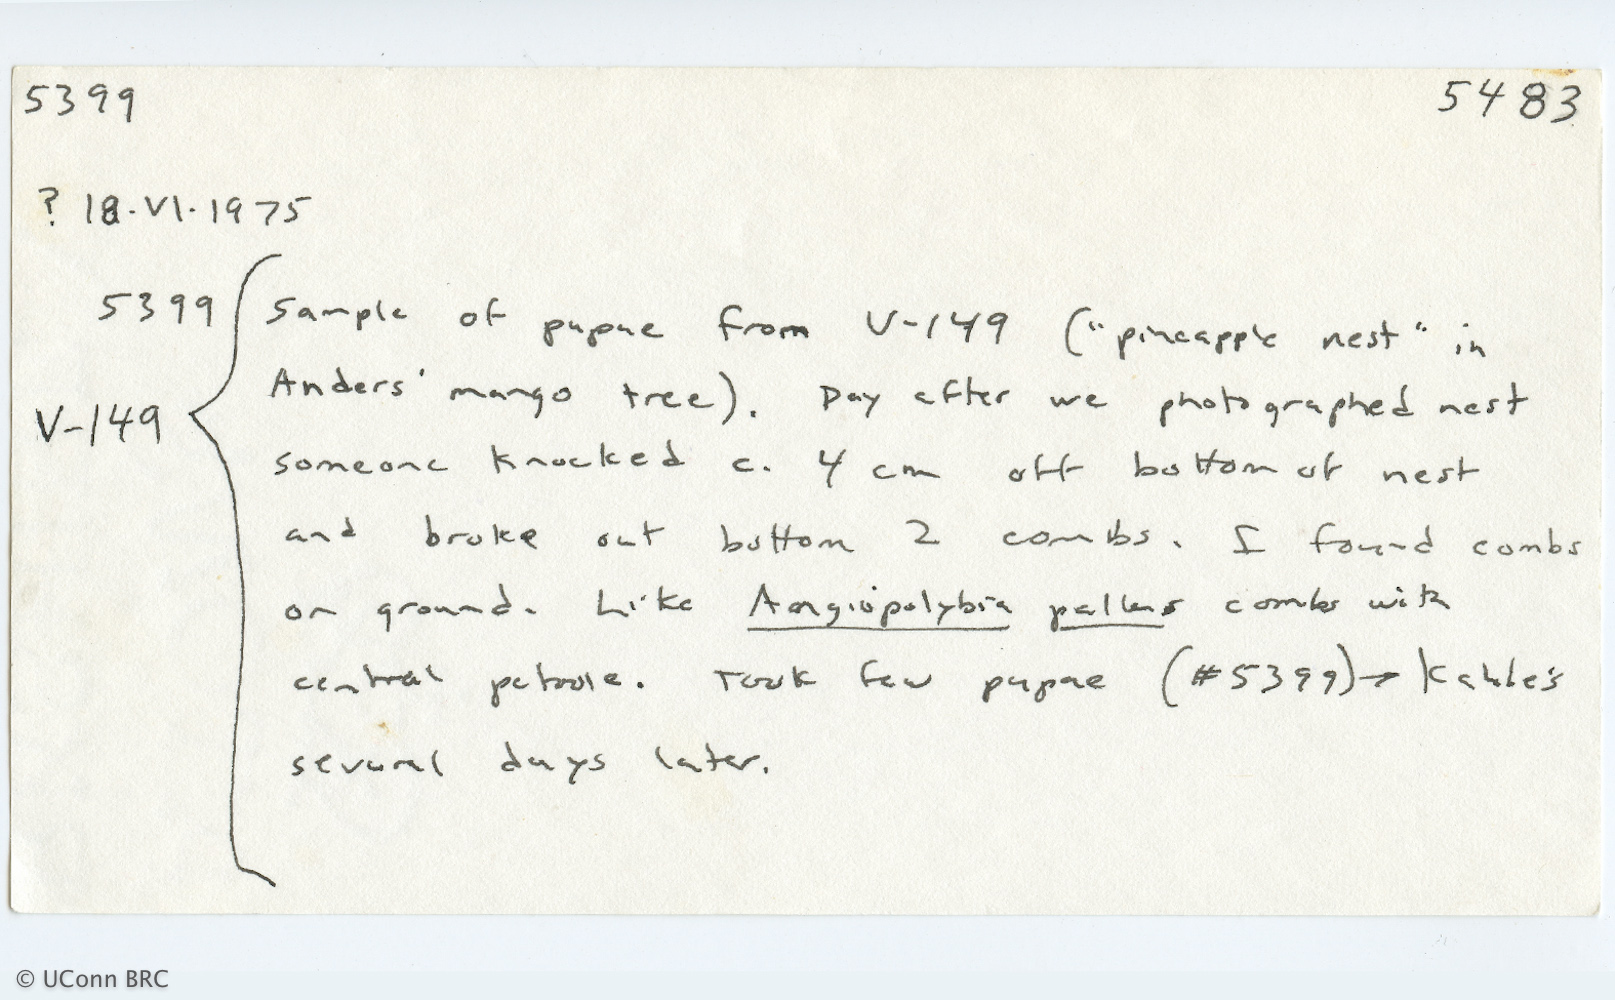 5399 5483
? 18·VI·1975
5399
V-149
Sample of pupae from V-149 ("pineapple nest" in
Anders' mango tree). Day after we photographed nest
someone knocked c. 4 cm off bottom of nest
and broke out bottom 2 combs. I found combs
on ground. Like Angiopolybia pallens combs with
central petiole. Took few pupae (#5399) → Kahle's
several days later.
© UConn BRC